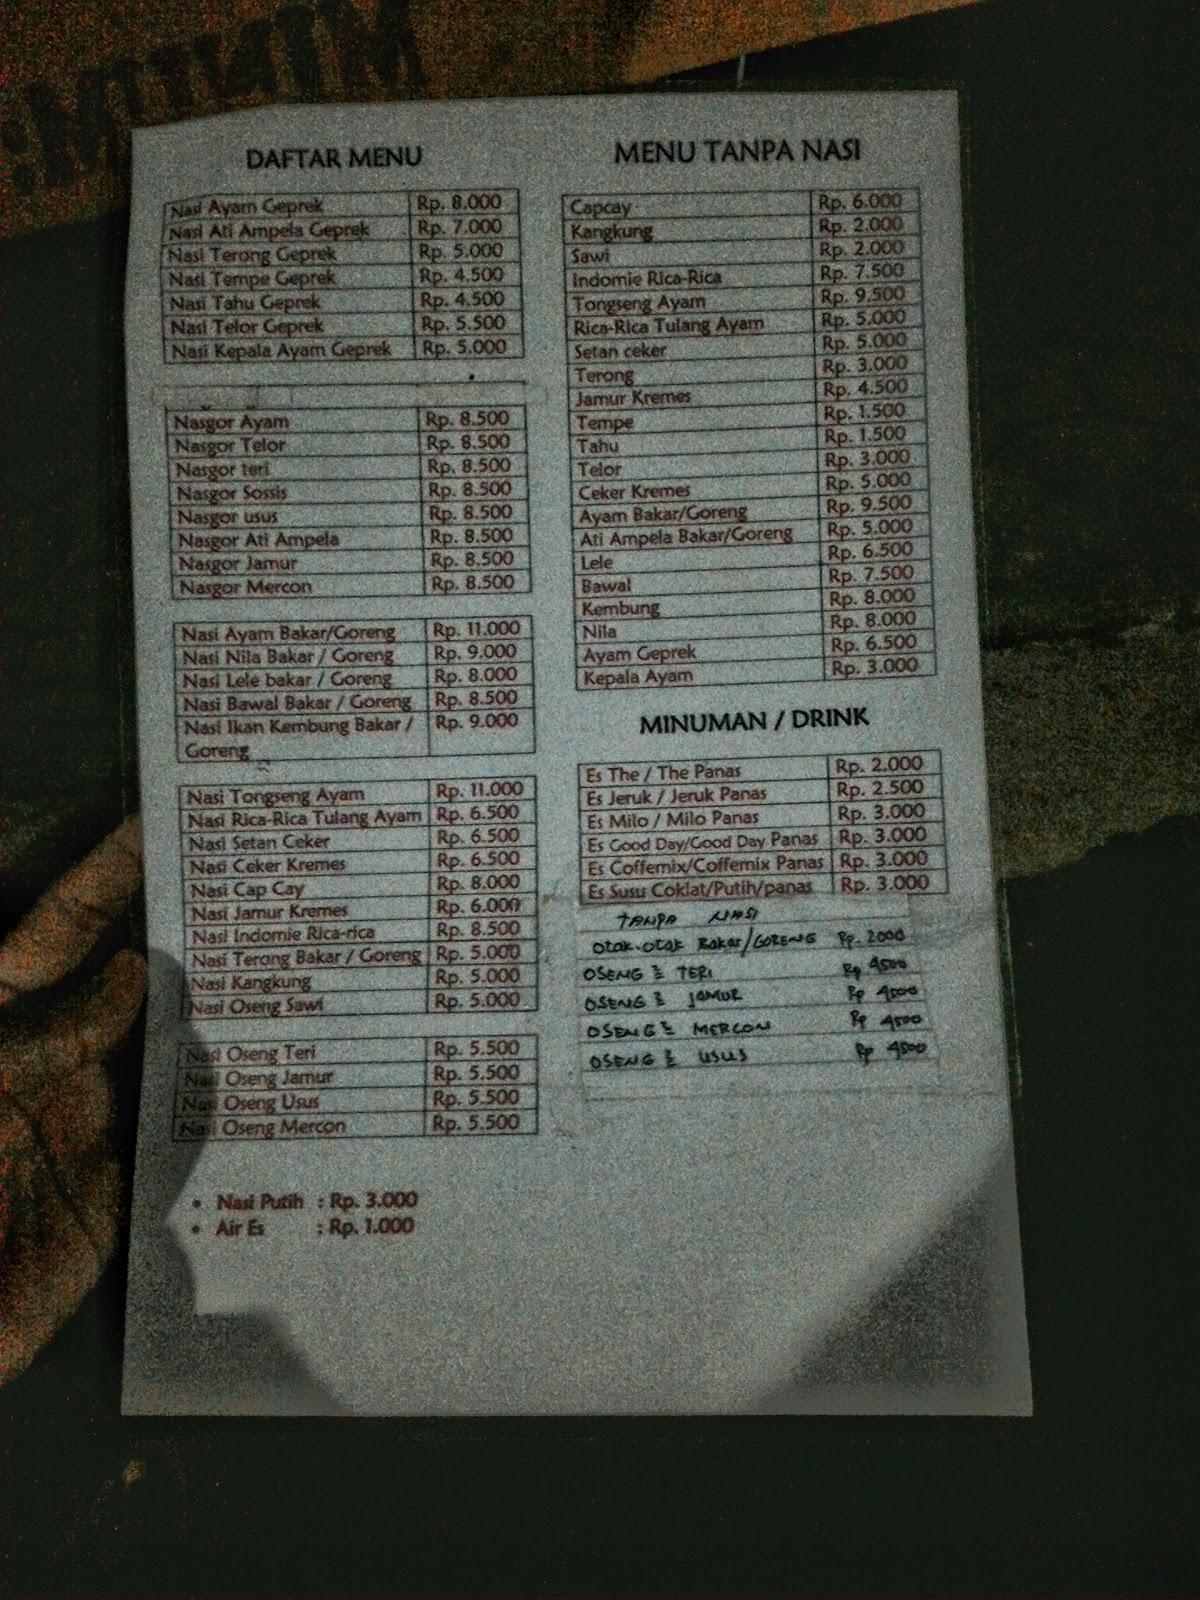 DAFTAR MENU
Nasi Ayam Geprek Rp. 8.000
Nasi Ati Ampela Geprek Rp. 7.000
Nasi Terong Geprek Rp. 5.000
Nasi Tempe Geprek Rp. 4.500
Nasi Tahu Geprek Rp. 4.500
Nasi Telor Geprek Rp. 5.500
Nasi Kepala Ayam Geprek Rp. 5.000
Nasgor Ayam Rp. 8.500
Nasgor Telor Rp. 8.500
Nasgor teri Rp. 8.500
Nasgor Sossis Rp. 8.500
Nasgor usus Rp. 8.500
Nasgor Ati Ampela Rp. 8.500
Nasgor Jamur Rp. 8.500
Nasgor Mercon Rp. 8.500
Nasi Ayam Bakar/Goreng Rp. 11.000
Nasi Nila Bakar / Goreng Rp. 9.000
Nasi Lele bakar / Goreng Rp. 8.000
Nasi Bawal Bakar / Goreng Rp. 8.500
Nasi Ikan Kembung Bakar / Rp. 9.000
Goreng
Nasi Tongseng Ayam Rp. 11.000
Nasi Rica-Rica Tulang Ayam Rp. 6.500
Nasi Setan Ceker Rp. 6.500
Nasi Ceker Kremes Rp. 6.500
Nasi Cap Cay Rp. 8.000
Nasi Jamur Kremes Rp. 6.000
Nasi Indomie Rica-rica Rp. 8.500
Nasi Terong Bakar / Goreng Rp. 5.000
Nasi Kangkung Rp. 5.000
Nasi Oseng Sawi Rp. 5.000
Nasi Oseng Teri Rp. 5.500
Nasi Oseng Jamur Rp. 5.500
Nasi Oseng Usus Rp. 5.500
Nasi Oseng Mercon Rp. 5.500
• Nasi Putih : Rp. 3.000
• Air Es : Rp. 1.000
MENU TANPA NASI
Capcay Rp. 6.000
Kangkung Rp. 2.000
Sawi Rp. 2.000
Indomie Rica-Rica Rp. 7.500
Tongseng Ayam Rp. 9.500
Rica-Rica Tulang Ayam Rp. 5.000
Setan ceker Rp. 5.000
Terong Rp. 3.000
Jamur Kremes Rp. 4.500
Tempe Rp. 1.500
Tahu Rp. 1.500
Telor Rp. 3.000
Ceker Kremes Rp. 5.000
Ayam Bakar/Goreng Rp. 9.500
Ati Ampela Bakar/Goreng Rp. 5.000
Lele Rp. 6.500
Bawal Rp. 7.500
Kembung Rp. 8.000
Nila Rp. 8.000
Ayam Geprek Rp. 6.500
Kepala Ayam Rp. 3.000
MINUMAN / DRINK
Es The / The Panas Rp. 2.000
Es Jeruk / Jeruk Panas Rp. 2.500
Es Milo / Milo Panas Rp. 3.000
Es Good Day/Good Day Panas Rp. 3.000
Es Coffemix/Coffemix Panas Rp. 3.000
Es Susu Coklat/Putih/panas Rp. 3.000
TANPA NASI
Otak-otak Bakar/GORENG Rp. 2000
OSENG2 TERI Rp 4500
OSENG2 JAMUR Rp 4500
OSENG2 MERCON Rp 4500
OSENG2 USUS Rp 4500